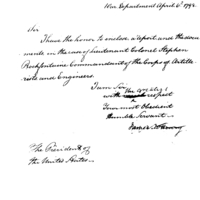 War Department April 6th 1792.
Sir
I have the honor to enclose a Report and the docu-
ments in the case of Lieutenant Colonel Stephen
Rochfontaine Commandant of the Corps of Artille-
rists and Engineers.
I am Sir
with the highest respect
Your most Obedient
humble Servant
James McHenry
The President of
the United States.